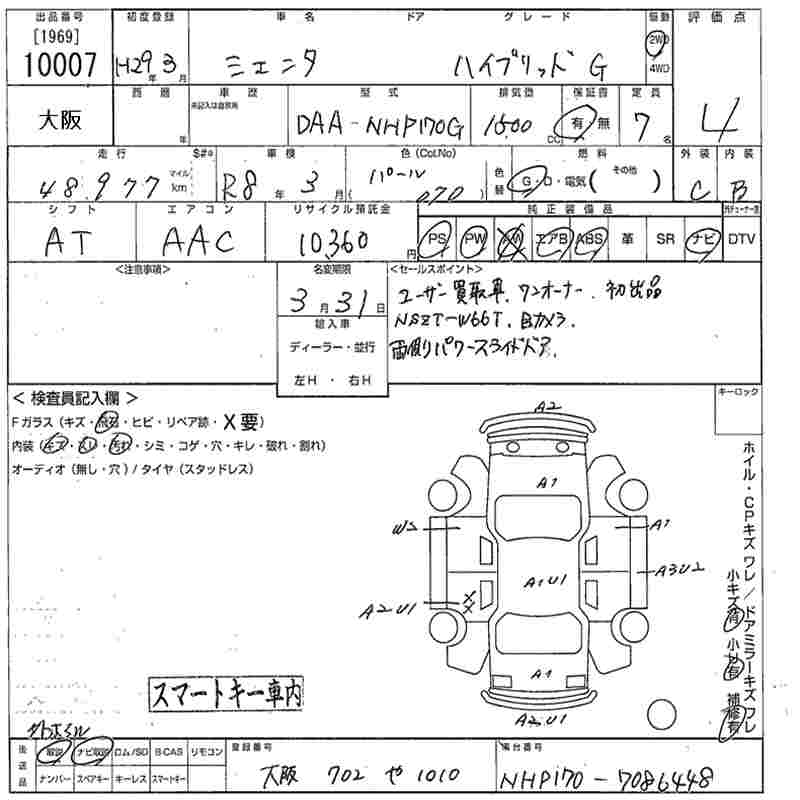 出品番号 初度登録 車名 ドア グレード 駆動 評価点
[1969] 10007 H29年3月 シエンタ ハイブリッド G 2WD 4WD
大阪 西暦 年 車歴 未記入は自家用 型式 排気量 保証書 定員 4
DAA-NHP170G 1500CC 有・無 7名
走行 $#※ 車検 色(Col.No) 燃料 外装 内装
48,977 マイル km R8年3月 パール (070) 色替 G・D・電気( その他 ) C B
シフト エアコン リサイクル預託金 純正装備品
AT AAC 10,360円 PS PW AW エアB ABS 革 SR ナビ DTV
<注意事項> 名変期限 <セールスポイント>
3月31日 ユーザー買取車、ワンオーナー、初出品
NSZT-W66T、Bカメラ、
輸入車 両側パワースライドドア、
ディーラー・並行
左H・右H
< 検査員記入欄 > キーロック
Fガラス(キズ・飛石・ヒビ・リペア跡・X要)
内装(キズ・汚れ・シミ・コゲ・穴・キレ・破れ・割れ)
オーディオ(無し・穴)/タイヤ(スタッドレス)
A2
A1
W2 A1
A1U1 A3U2
A2U1 XX
A1
A2U1
ホイル・CPキズ ワレ/ドアミラーキズ ワレ
小キズ有 小凹有 補修有
スマートキー車内
後送品 取説 ナビ取説 ロム/SD B-CAS リモコン 登録番号 車台番号
ナンバー スペアキー キーレス スマートキー 大阪 702 や 1010 NHP170-7086448